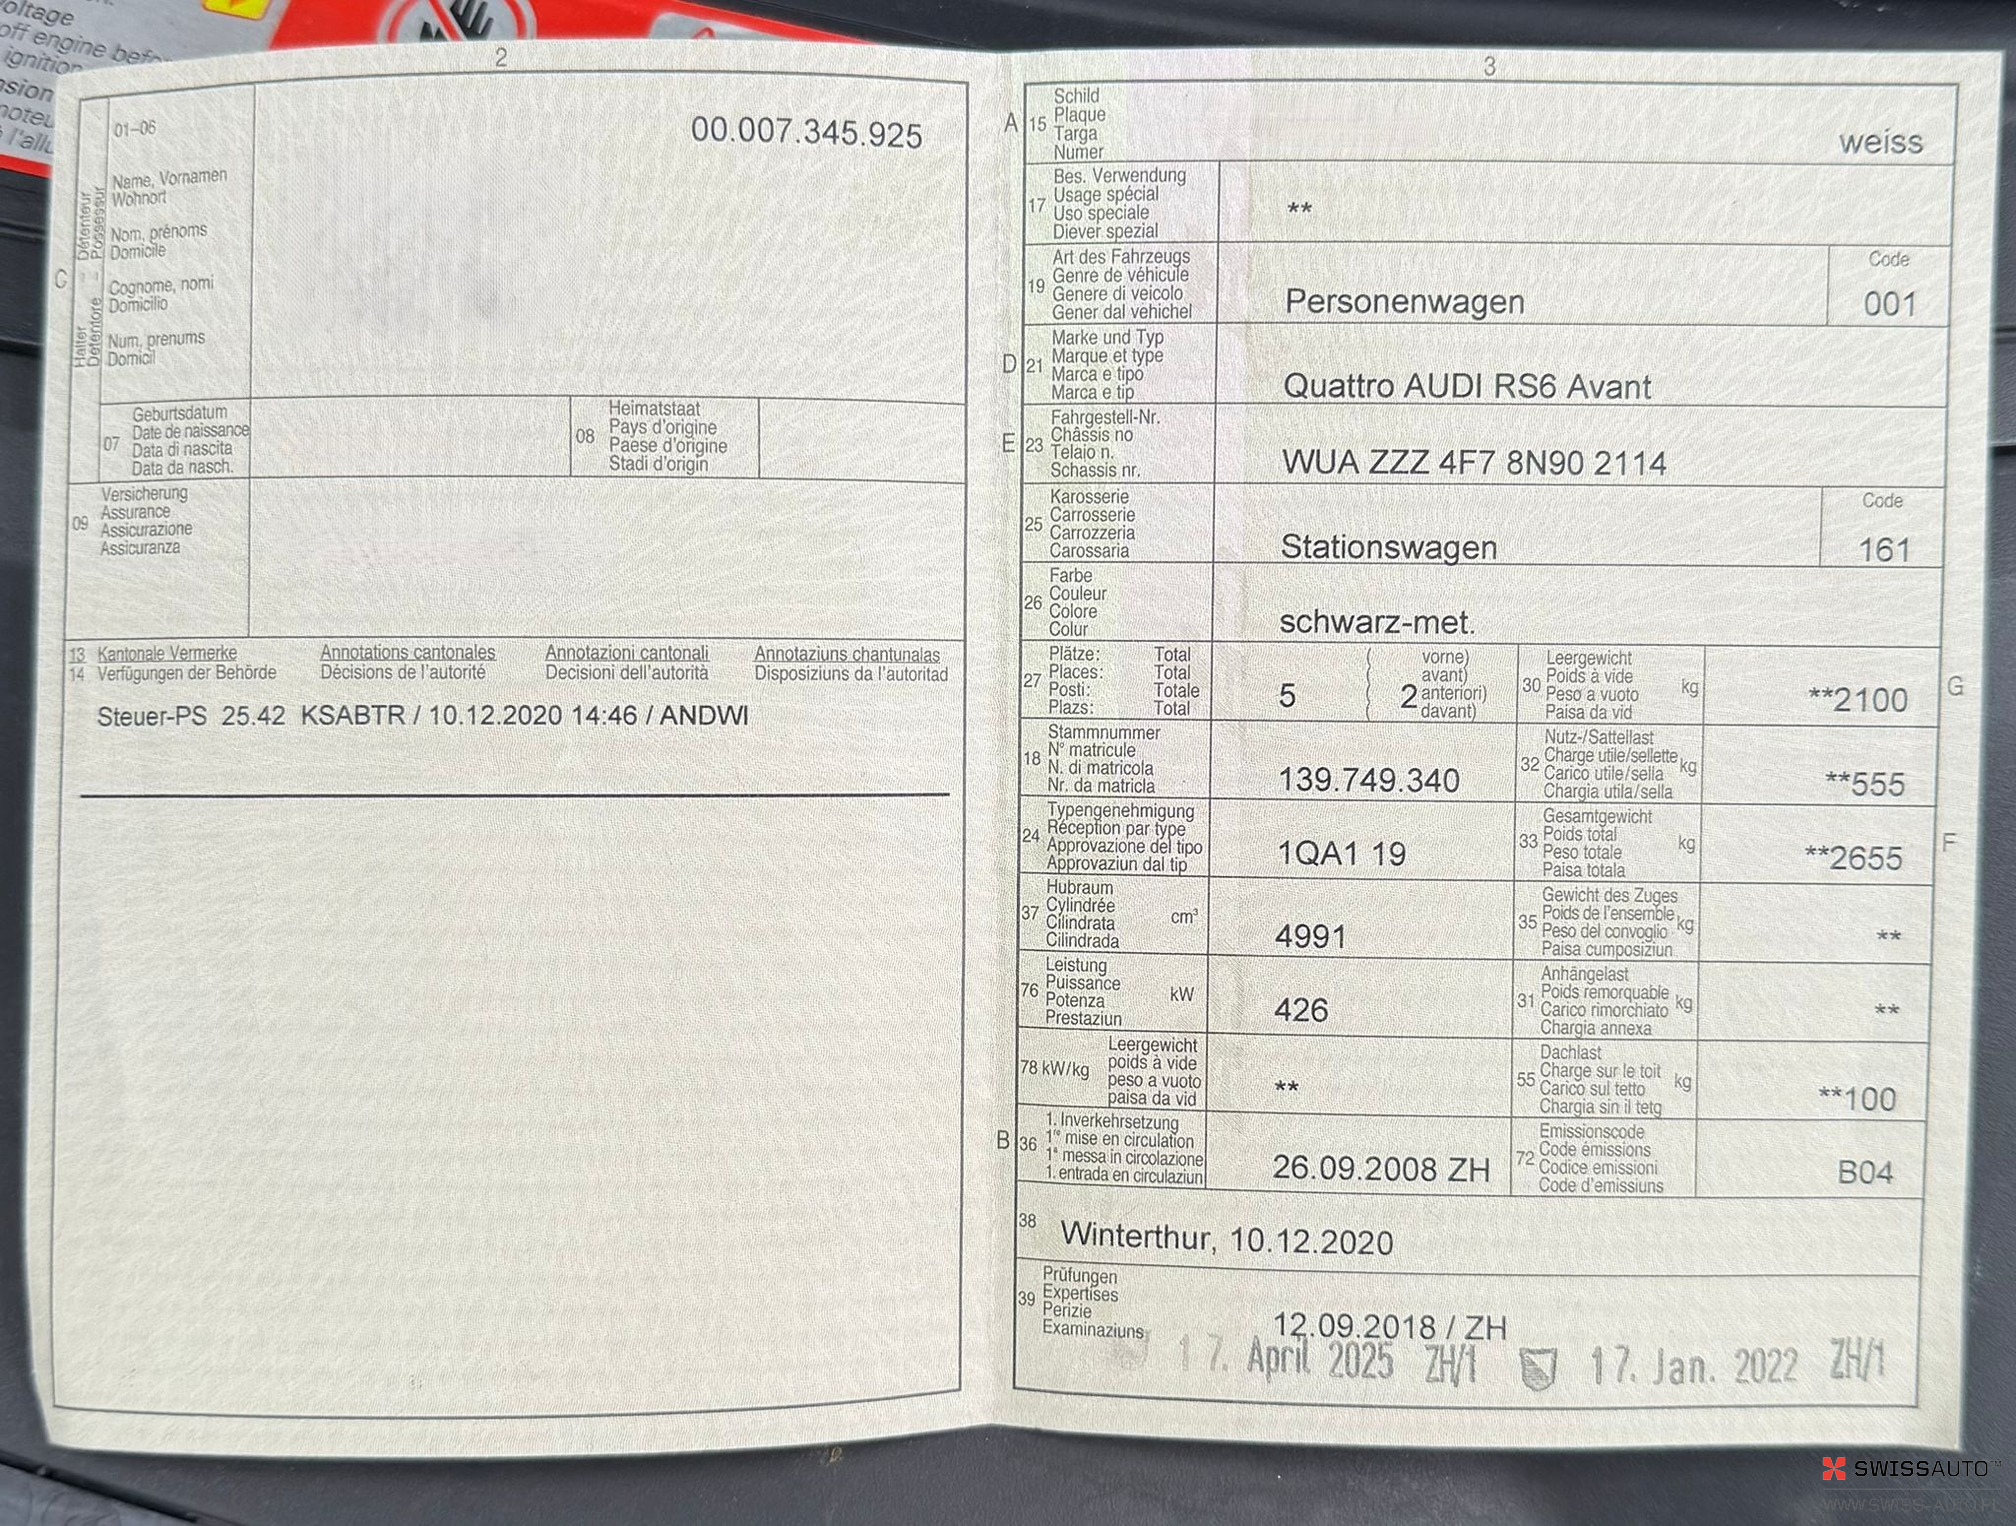 oltage
off engine before
ignition
nsion
moteu
à l'allu
2
01–06
00.007.345.925
C
Halter – Détenteur
Detentore – Possessur
Name, Vornamen
Wohnort
Nom, prénoms
Domicile
Cognome, nomi
Domicilio
Num, prenums
Domicil
07
Geburtsdatum
Date de naissance
Data di nascita
Data da nasch.
08
Heimatstaat
Pays d'origine
Paese d'origine
Stadi d'origin
09
Versicherung
Assurance
Assicurazione
Assicuranza
13 Kantonale Vermerke Annotations cantonales Annotazioni cantonali Annotaziuns chantunalas
14 Verfügungen der Behörde Décisions de l'autorité Decisioni dell'autorità Disposiziuns da l'autoritad
Steuer-PS 25.42 KSABTR / 10.12.2020 14:46 / ANDWI
3
A 15
Schild
Plaque
Targa
Numer
weiss
17
Bes. Verwendung
Usage spécial
Uso speciale
Diever spezial
**
19
Art des Fahrzeugs
Genre de véhicule
Genere di veicolo
Gener dal vehichel
Personenwagen
Code
001
D 21
Marke und Typ
Marque et type
Marca e tipo
Marca e tip
Quattro AUDI RS6 Avant
E 23
Fahrgestell-Nr.
Châssis no
Telaio n.
Schassis nr.
WUA ZZZ 4F7 8N90 2114
25
Karosserie
Carrosserie
Carrozzeria
Carossaria
Stationswagen
Code
161
26
Farbe
Couleur
Colore
Colur
schwarz-met.
27
Plätze: Total
Places: Total
Posti: Totale
Plazs: Total
5
( vorne)
( avant)
( 2 anteriori)
( davant)
30
Leergewicht
Poids à vide
Peso a vuoto
Paisa da vid
kg
**2100
G
18
Stammnummer
N° matricule
N. di matricola
Nr. da matricla
139.749.340
32
Nutz-/Sattellast
Charge utile/sellette
Carico utile/sella
Chargia utila/sella
kg
**555
24
Typengenehmigung
Réception par type
Approvazione del tipo
Approvaziun dal tip
1QA1 19
33
Gesamtgewicht
Poids total
Peso totale
Paisa totala
kg
**2655
F
37
Hubraum
Cylindrée
Cilindrata
Cilindrada
cm³
4991
35
Gewicht des Zuges
Poids de l'ensemble
Peso del convoglio
Paisa cumposiziun
kg
**
76
Leistung
Puissance
Potenza
Prestaziun
kW
426
31
Anhängelast
Poids remorquable
Carico rimorchiato
Chargia annexa
kg
**
78 kW/kg
Leergewicht
poids à vide
peso a vuoto
paisa da vid
**
55
Dachlast
Charge sur le toit
Carico sul tetto
Chargia sin il tetg
kg
**100
B 36
1. Inverkehrsetzung
1re mise en circulation
1a messa in circolazione
1. entrada en circulaziun
26.09.2008 ZH
72
Emissionscode
Code émissions
Codice emissioni
Code d'emissiuns
B04
38
Winterthur, 10.12.2020
39
Prüfungen
Expertises
Perizie
Examinaziuns
12.09.2018 / ZH
17. April 2025 ZH/1 17. Jan. 2022 ZH/1
SWISSAUTO™